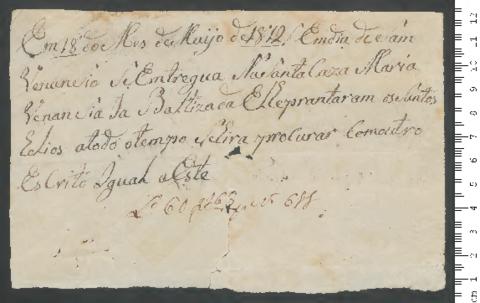 Em 18 do Mes de Maijo de 1812 Em dia de sam
Venancio Se Entregua Na Santa Caza Maria
Venancia Ja Baltizada E lleprantaram os Santos
Holios atodo otempo Selira procurar Comoutro
EsCrito Igual aEste
Lo 60 fl 63 688